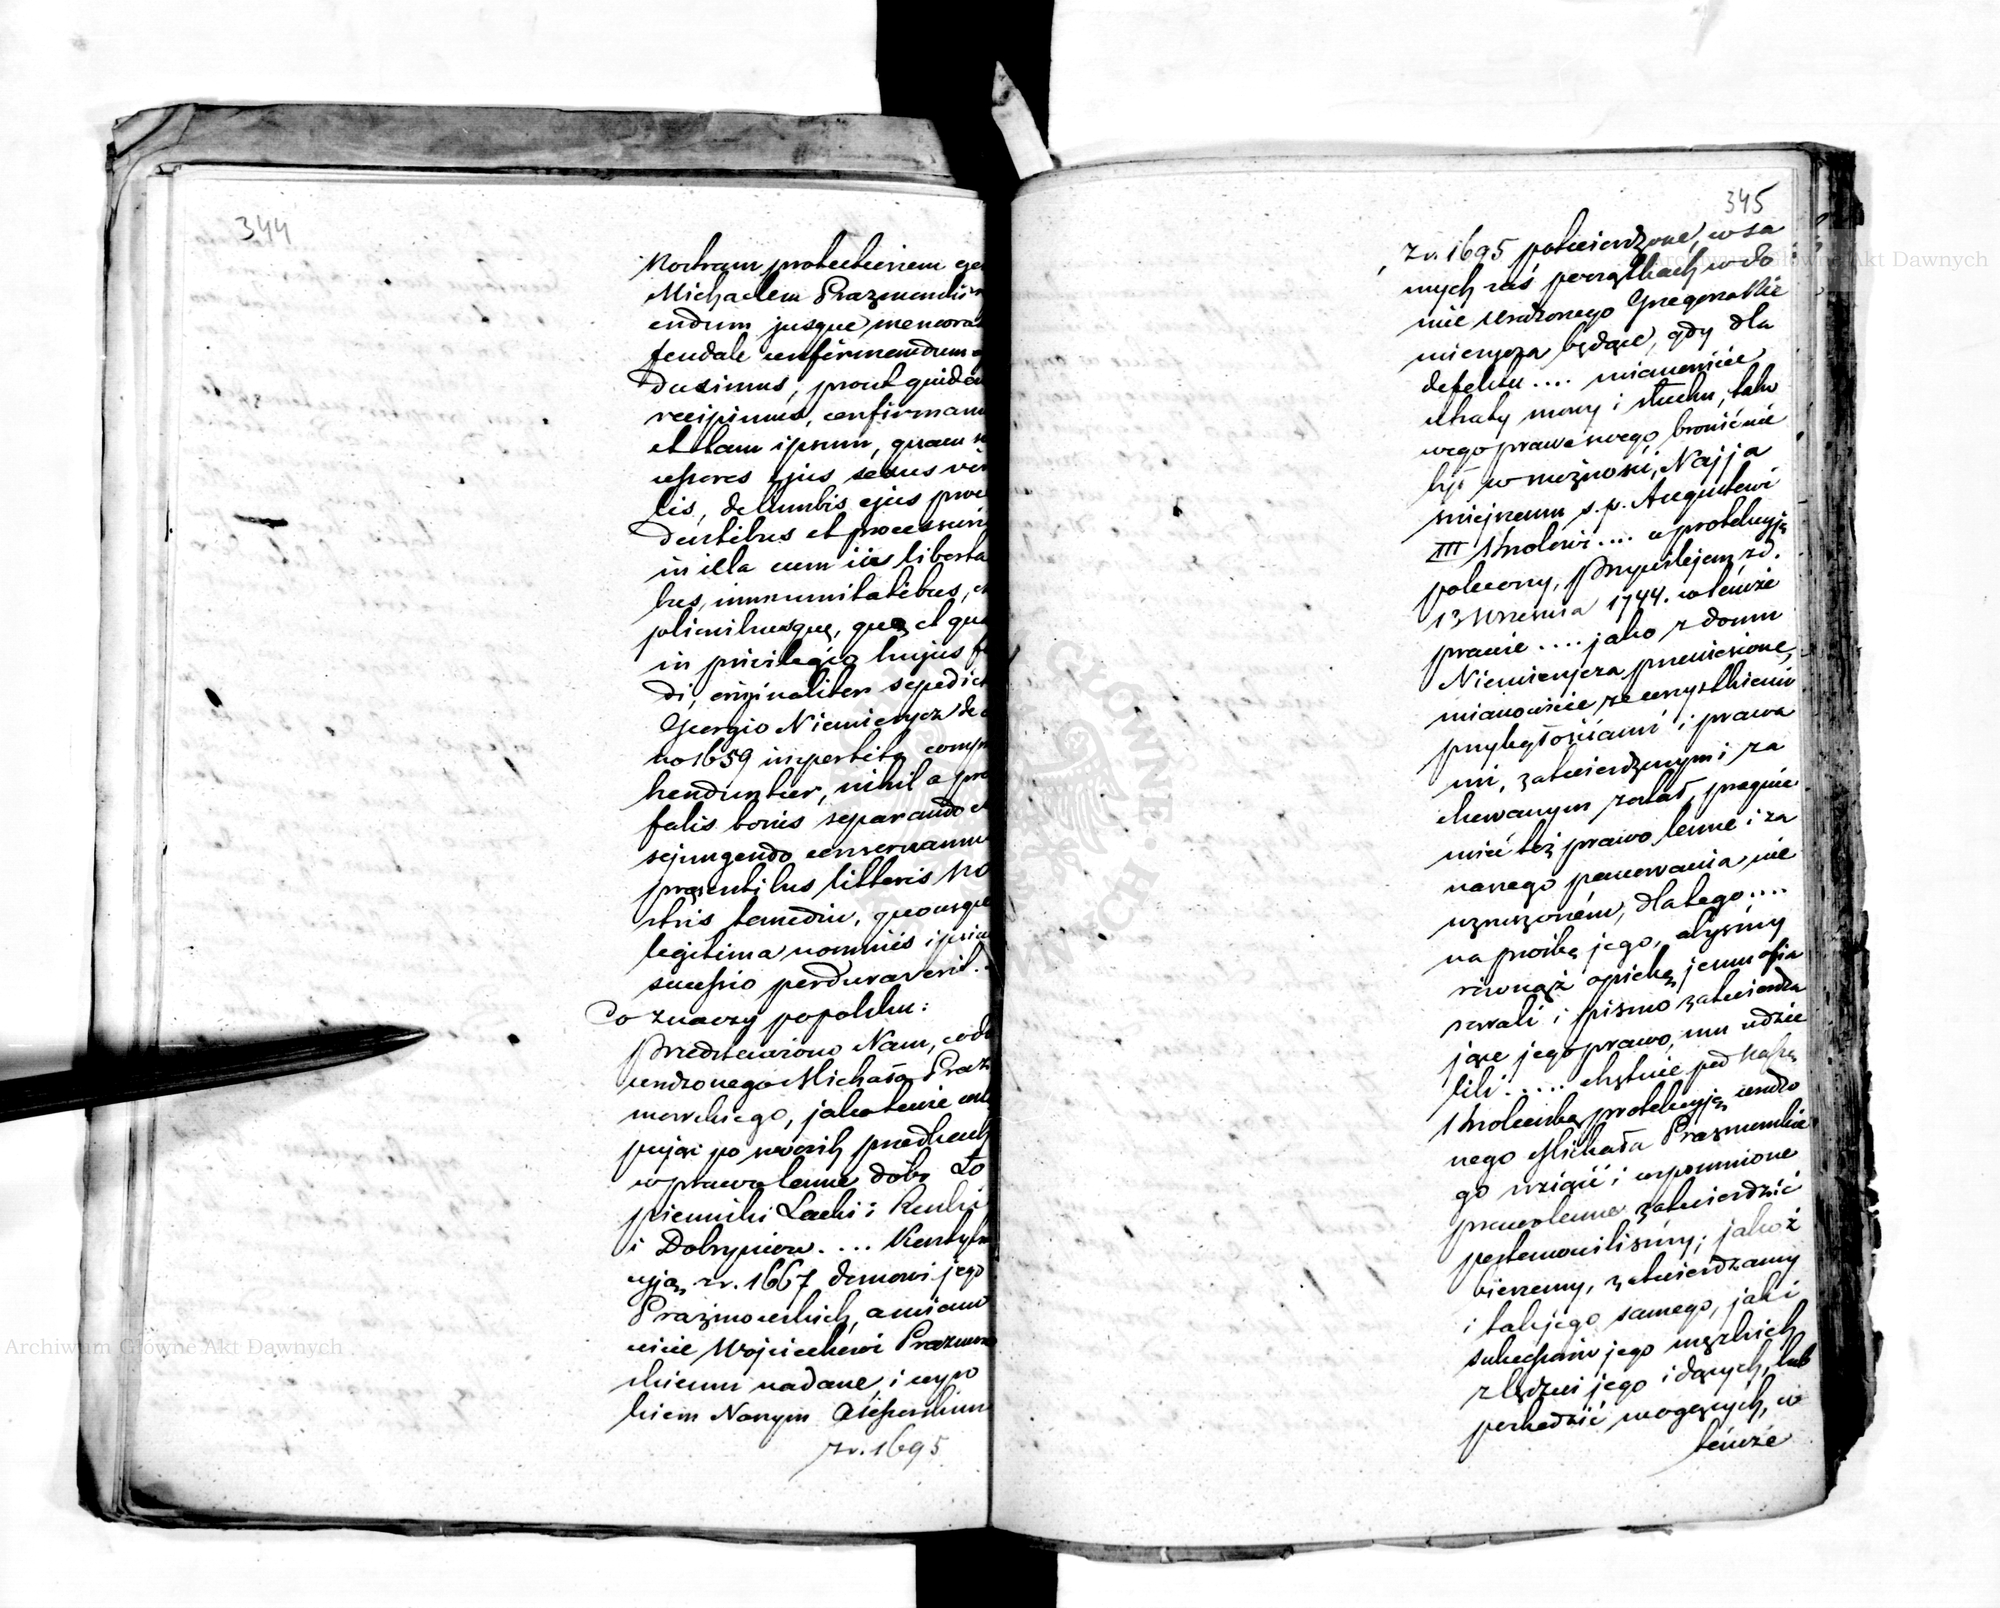 344
Nostram protectionem ge
Michaelem Prazmowski
endum jusque memora
feudale confirmandum
duximus, prout quidem
recipimus, confirmam
et tam ipsum, quam s
cessores ejus sexus viri
lis, de lumbis ejus proce
dentibus et processuris
in illa cum iis liberta
bus, immunitatibus,
plicinibusque, quae et qua
in privilegio hujus f
di, originaliter sepedict
Georgio Niemierycz de
no 1659 impertito comp
henduntur, nihil a pre
fatis bonis separando
sejungendo conservamus
praesentibus litteris No
stris tamdiu, quousque
legitima nominis ipsius
successio perduraverit..
Co znaczy po polsku:
Przedstawiono Nam, 
urodzonego Michała Praż
mowskiego, jako tenże
pując po swoich przodkach
w prawo lenne dóbr Ło
pienniki Lacki i Ruski
i Dobryniow.... Konstytu
cyją zr. 1667 domowi jego
Prażmowskich, a miano
wicie Wojciechowi Prażmow
skiemu nadane, i wyro
kiem Naszym Assesorskim
zr. 1695
345
zr. 1695 potwierdzone, w sa
mych zaś początkach w do
mie urodzonego Grzegorza Nie
mierycza będące, gdy dla
defektu.... mianowicie
utraty mowy i słuchu, tako
wego prawa swego bronić nie
był w możności, Najja
śniejszemu s.p. Augustowi
III Królowi.... w protekcyję
polecony, Przywilejem zd.
13 Września 1744. w temże
prawie.... jako z domu
Niemierycza przeniesione,
mianowicie ze wszystkiemi
przyległościami i prawa
mi, zatwierdzonym i za
chowanym został, pragnie
mieć też prawo lenne i za
naszego panowania nie
wzruszoném, dlatego....
na prośbę jego, abyśmy
równąż opiekę jemu ofia
rowali i pismo zatwierdza
jące jego prawo, mu udzie
lili.... chętnie pod Naszę
Królewską protekcyję urodzo
nego Michała Prażmowskie
go wziąść i wspomnione
prawo lenne zatwierdzić
postanowiliśmy; jakoż
bierzemy, zatwierdzamy
i tak jego samego, jak i
sukcessorów jego męzkich
z lędźwi jego idących, lub
pochodzić mogących, w
temże
Archiwum Główne Akt Dawnych
Archiwum Główne Akt Dawnych